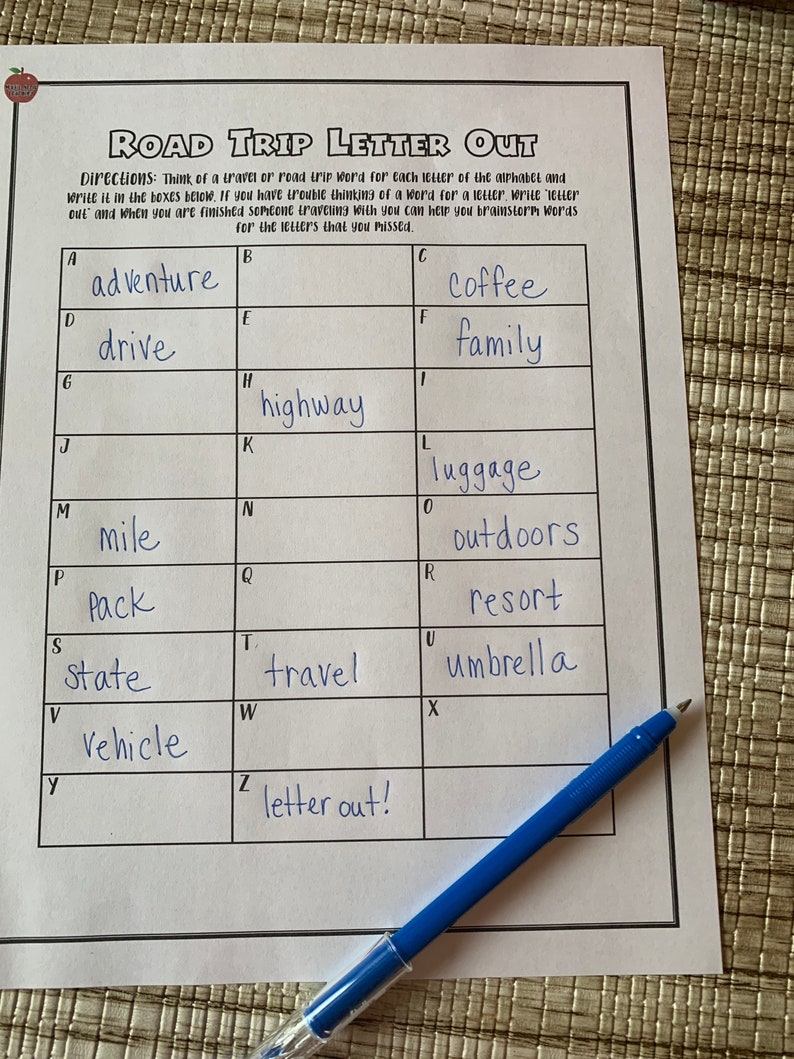 ROAD TRIP LETTER OUT
Directions: Think of a travel or road trip word for each letter of the alphabet and
write it in the boxes below. If you have trouble thinking of a word for a letter, write "letter
out" and when you are finished someone traveling with you can help you brainstorm words
for the letters that you missed.
A adventure
B
C coffee
D drive
E
F family
G
H highway
I
J
K
L luggage
M mile
N
O outdoors
P pack
Q
R resort
S state
T travel
U umbrella
V vehicle
W
X
Y
Z letter out!